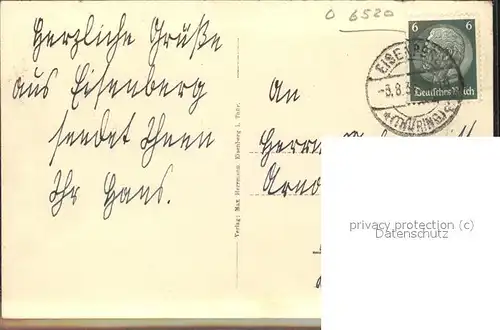 O 6520
Herzliche Grüße
aus Eisenberg
sendet Ihnen
Ihr Hans.
Verlag: Max Herrmann, Eisenberg i. Thür.
6 6
Deutsches Reich
EISENBERG
-5.8.3
(THÜRING)
An
Herrn
Arno
privacy protection (c)
Datenschutz